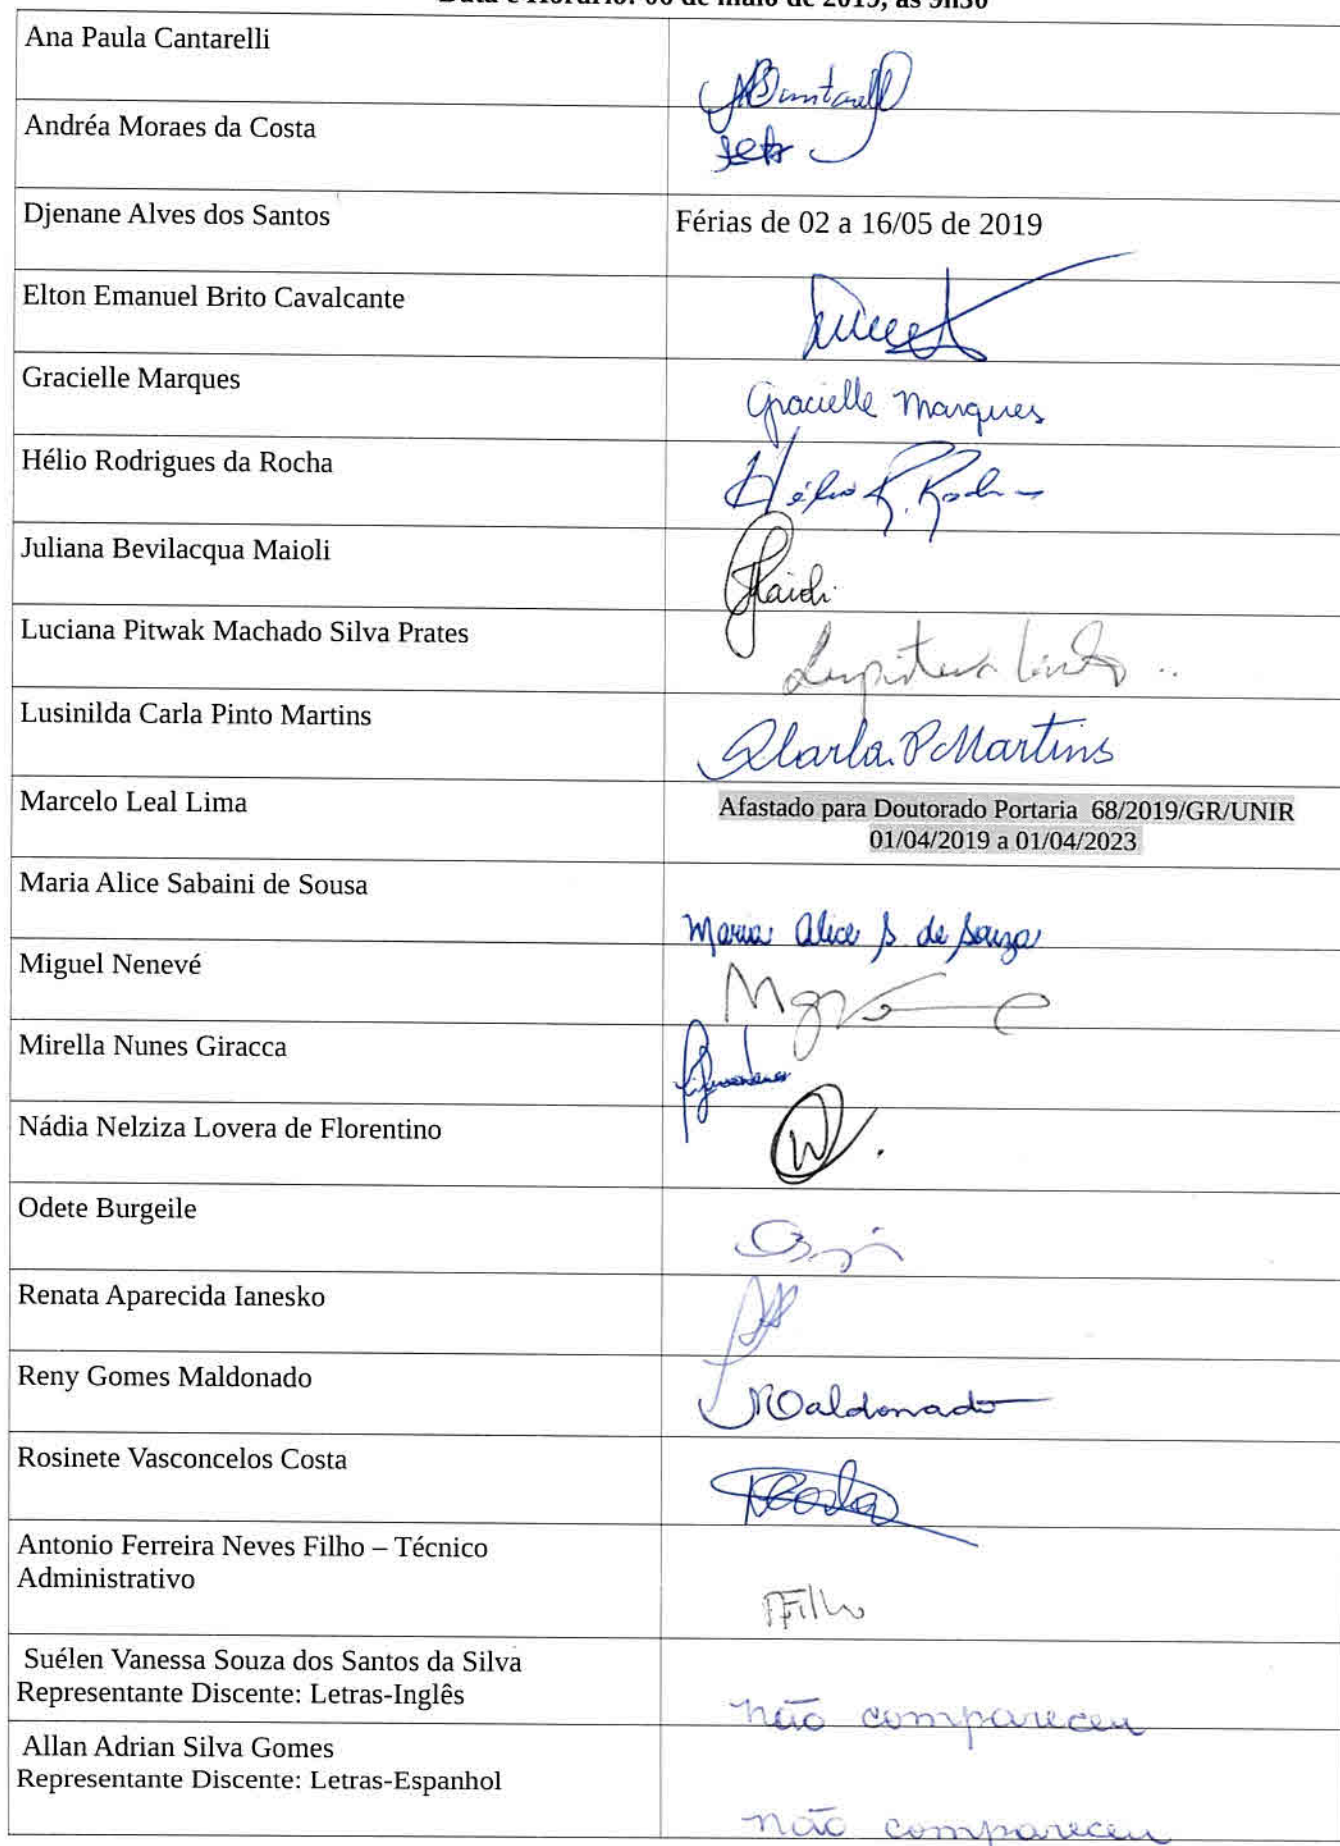 Data e Horário: 06 de maio de 2019, às 9h30
Ana Paula Cantarelli
Andréa Moraes da Costa
Djenane Alves dos Santos
Férias de 02 a 16/05 de 2019
Elton Emanuel Brito Cavalcante
Gracielle Marques
Gracielle Marques
Hélio Rodrigues da Rocha
Hélio R. Rocha
Juliana Bevilacqua Maioli
Luciana Pitwak Machado Silva Prates
Lusinilda Carla Pinto Martins
Carla P Martins
Marcelo Leal Lima
Afastado para Doutorado Portaria 68/2019/GR/UNIR
01/04/2019 a 01/04/2023
Maria Alice Sabaini de Sousa
Maria Alice S de Souza
Miguel Nenevé
Mirella Nunes Giracca
Nádia Nelziza Lovera de Florentino
Odete Burgeile
Renata Aparecida Ianesko
Reny Gomes Maldonado
Maldonado
Rosinete Vasconcelos Costa
RCosta
Antonio Ferreira Neves Filho – Técnico
Administrativo
Filho
Suélen Vanessa Souza dos Santos da Silva
Representante Discente: Letras-Inglês
não compareceu
Allan Adrian Silva Gomes
Representante Discente: Letras-Espanhol
não compareceu